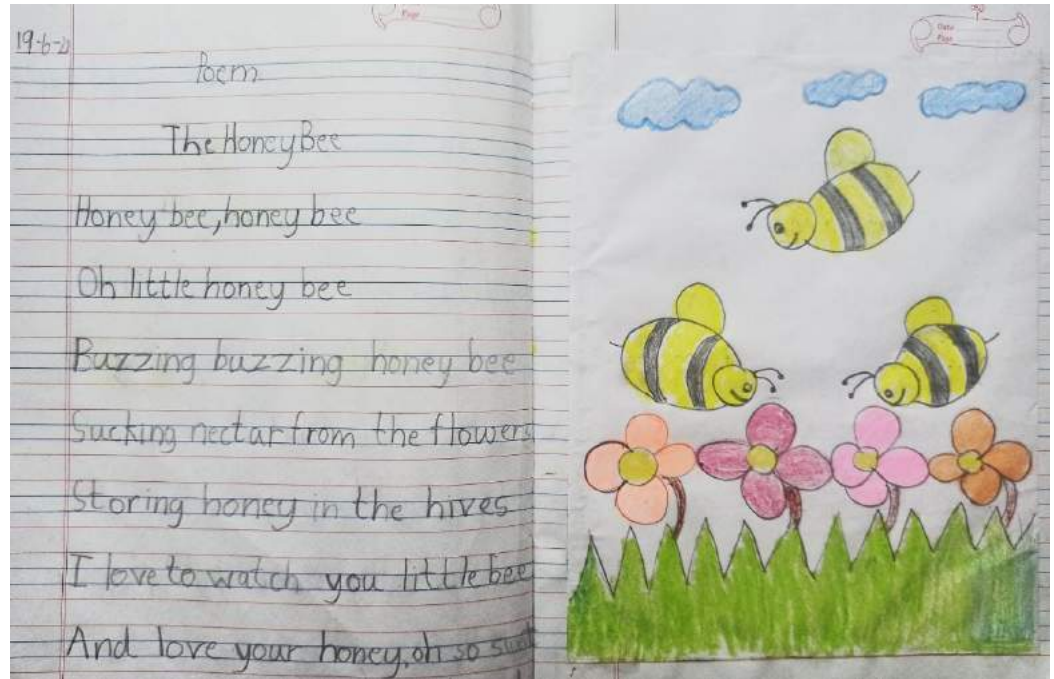 Page
19-6-21
Poem
The Honey Bee
Honey bee, honey bee
Oh little honey bee
Buzzing buzzing honey bee
Sucking nectar from the flowers
Storing honey in the hives
I love to watch you little bee
And love your honey, oh so
Date
Page